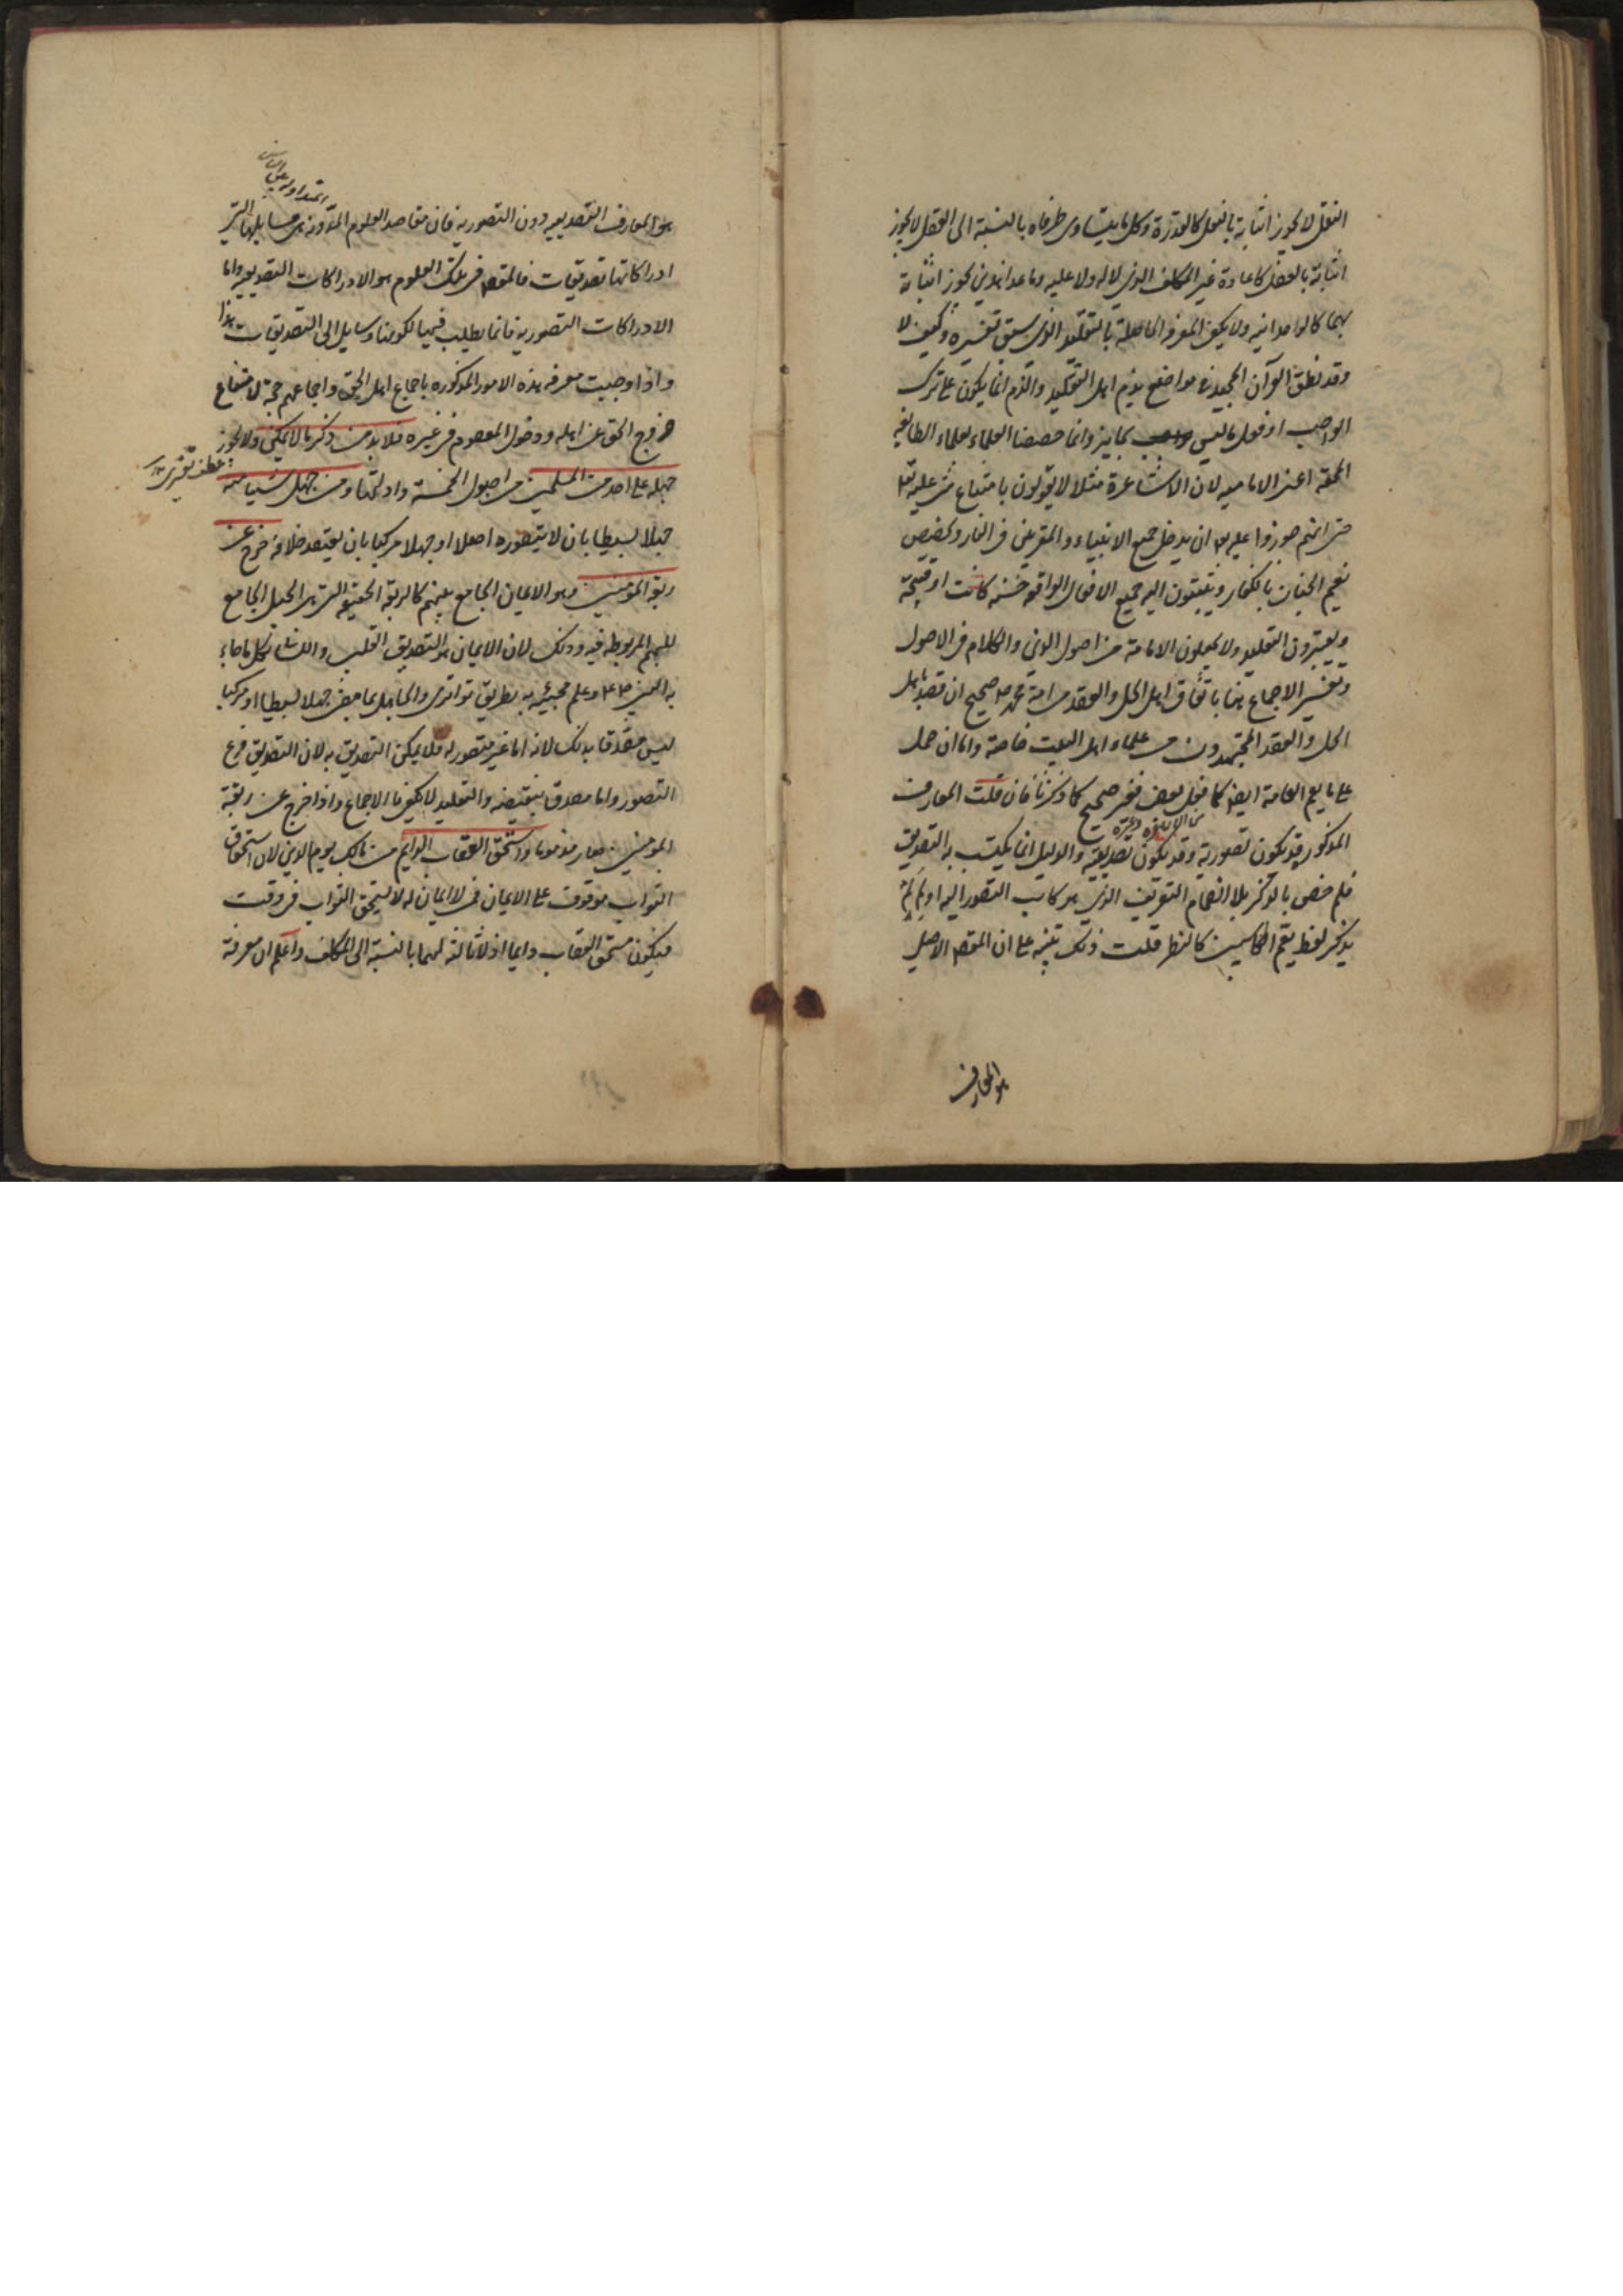 النقل لا يجوز اثباته بالعقل كالقدرة وكل ما يتساوى طرفاه بالنسبة الى العقل لا يجوز
اثباته بالعقل كاعادة غير المكلف الذى لا له ولا عليه وما عدا هذين يجوز اثباته
بهما كالوحدانيه ولا يكفى المعرفة الحاصلة بالتقليد الذى سبق تفسيره وكيف لا
وقد نطق القرآن المجيد فى مواضع بذم اهل التقليد والذم انما يكون على ترك
الواجب او فعل ما ليس بجايز وانما خصصنا العلماء بعلماء الطايفه
المحقه اعنى الاماميه لان الاشاعرة مثلا لا يقولون بامتناع شئ عليه تعم
حتى انهم جوزوا عليه تعم ان يدخل جميع الانبياء والمقربين فى النار وتخصيص
نعيم الجنان بالكفار وينسبون اليه جميع الافعال الواقعه حسنه كانت او قبيحة
ويعتبرون التقليد ولا يجعلون الامامة من اصول الدين والكلام فى الاصول
وتفسير الاجماع هنا باتفاق اهل الحل والعقد من امة محمد ص صحيح ان قصد باهل
الحل والعقد المجتهدون من علماء اهل البيت خاصة واما ان حمل
على ما يعم العامة ايضا كما فعل بعض فغير صحيح كما ذكرنا فان قلت المعارف
المذكور قد تكون تصورية وقد تكون تصديقيه والدليل انما يكتسب به التصديق
فلم خص بالذكر بلا انضمام التعريف الذى هو كاسب التصور اليه او لم لم
يذكر لفظ يعم الكاسبين كالنظر قلت ذلك تنبيه على ان المقصد الاصلى
هو المعارف
هو المعارف التصديقيه دون التصوريه فان مقاصد العلوم المدونه هى مسايلها التى
ادراكاتها تصديقات فالمقصد فى تلك العلوم هو الادراكات التصديقيه واما
الادراكات التصوريه فانما يطلب فيها لكونها وسايل الى التصديقات هذا
واذا وجبت معرفه هذه الامور المذكوره باجماع اهل الحق واجماعهم حجة لامتناع
خروج الحق عن اهله ودخول المعصوم فى غيره فلا بد من ذكر ما لا يمكن ولا يجوز
جهله على احد من المسلمين من اصول الخمسة وادلتها ومن جهل شيئا منه
جهلا بسيطا بان لا يتصوره اصلا او جهلا مركبا بان يعتقد خلافه خرج عن
ربقة المؤمنين وهو الايمان الجامع بينهم كالربقة الحقيقه التى هى الحبل الجامع
للبهم المربوطه فيه وذلك لان الايمان هو التصديق القلبى واللسانى بكل ما جاء
به النبى ص وعلم مجيئه به بطريق تواترى والجاهل بما بعض جهلا بسيطا او مركبا
ليس مصدقا بذلك لانه اما غير متصور له فلا يمكن التصديق به لان التصديق فرع
التصور واما مصدق بنقيضه والتقليد لا يكفى بالاجماع واذا خرج عن ربقة
المؤمنين صار مذموما واستحق العقاب الدايم من مالك يوم الدين لان استحقاق
الثواب موقوف على الايمان فمن لا ايمان له لا يستحق الثواب فى وقت
فيكون مستحق العقاب دايما اذ لا ثالث لهما بالنسبة الى المكلف واعلم ان معرفة